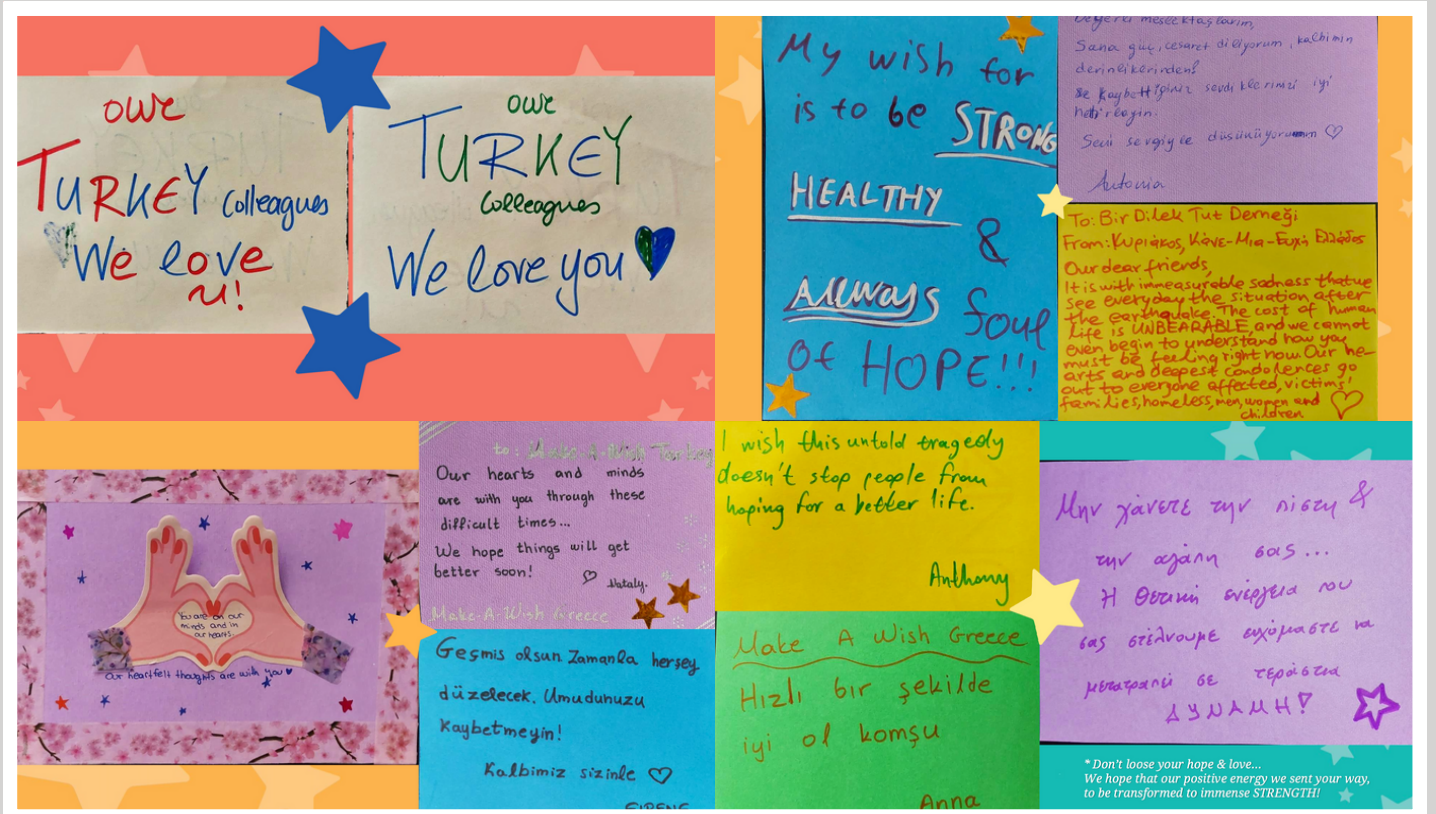 our
TURKEY colleagues
We love
u!
our
TURKEY
colleagues
We love you
My wish for
is to be STRONG
HEALTHY
&
Allways foul
OF HOPE!!!
Değerli meslektaşlarım,
Sana güç, cesaret diliyorum, kalbimin
derinliklerinden!
Se kaybettiğiniz sevdiklerinizi iyi
hatırlayın.
Seni sevgiyle düşünüyorum
Antonia
To: Bir Dilek Tut Derneği
From: Κυριάκος, Κάνε-Μια-Ευχή Ελλάδος
Our dear friends,
It is with immeasurable sadness that we
see everyday the situation after
the earthquake. The cost of human
life is UNBEARABLE, and we cannot
even begin to understand how you
must be feeling right now. Our he-
arts and deepest condolences go
out to everyone affected, victims'
families, homeless, men, women and
children
You are on our
minds and in
our hearts.
Our heartfelt thoughts are with you
to: Make-A-Wish Turkey
Our hearts and minds
are with you through these
difficult times...
We hope things will get
better soon!
Nataly.
Make-A-Wish Greece
Geçmis olsun Zamanla herşey
düzelecek. Umudunuzu
Kaybetmeyin!
Kalbimiz sizinle
EIRENE
I wish this untold tragedy
doesn't stop people from
hoping for a better life.
Anthony
Make A Wish Greece
Hızlı bir şekilde
iyi ol komşu
Anna
Μην χάνετε την πίστη &
την αγάπη σας...
Η θετική ενέργεια που
σας στέλνουμε ευχόμαστε να
μετατραπεί σε τεράστια
ΔΥΝΑΜΗ!
* Don't loose your hope & love...
We hope that our positive energy we sent your way,
to be transformed to immense STRENGTH!